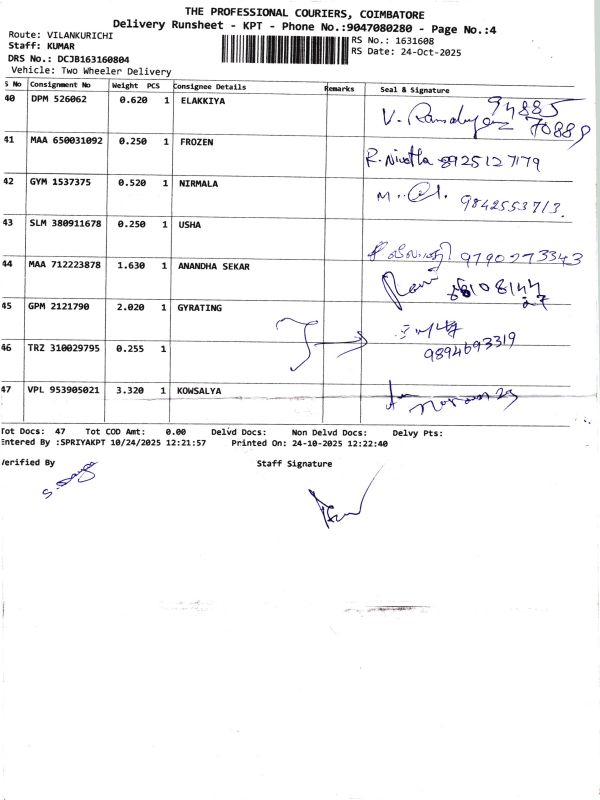 THE PROFESSIONAL COURIERS, COIMBATORE
Delivery Runsheet - KPT - Phone No.:9047080280 - Page No.:4
Route: VILANKURICHI
RS No.: 1631608
Staff: KUMAR
RS Date: 24-Oct-2025
DRS No.: DCJB163160804
Vehicle: Two Wheeler Delivery
S No Consignment No Weight PCS Consignee Details Remarks Seal & Signature
40 DPM 526062 0.620 1 ELAKKIYA 94885
V. 70889
41 MAA 650031092 0.250 1 FROZEN
R. Nivetha 8925127179
42 GYM 1537375 0.520 1 NIRMALA
M. 9842553713.
43 SLM 380911678 0.250 1 USHA
9790273343
44 MAA 712223878 1.630 1 ANANDHA SEKAR
Ravi 108144
27
45 GPM 2121790 2.020 1 GYRATING
46 TRZ 310029795 0.255 1
9894693319
47 VPL 953905021 3.320 1 KOWSALYA
Tot Docs: 47 Tot COD Amt: 0.00 Delvd Docs: Non Delvd Docs: Delvy Pts:
Entered By :SPRIYAKPT 10/24/2025 12:21:57 Printed On: 24-10-2025 12:22:40
Verified By Staff Signature